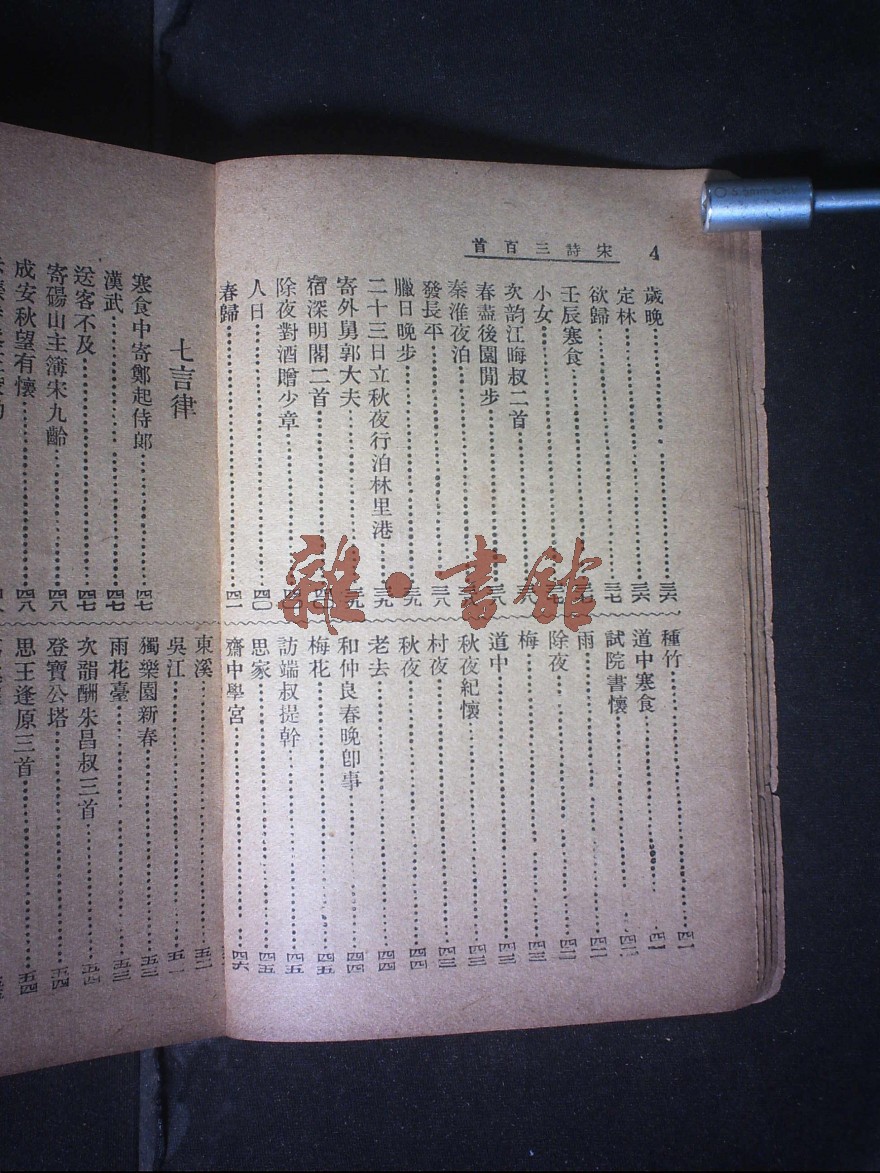 宋詩三百首 4
歲晚 三六
定林 三六
欲歸 三七
壬辰寒食
小女
次韵江晦叔二首
春盡後園閒步
秦淮夜泊
發長平 三八
臘日晚步 三九
二十三日立秋夜行泊林里港 三九
寄外舅郭大夫 三九
宿深明閣二首 四〇
除夜對酒贈少章 四〇
人日 四〇
春歸 四一
種竹 四一
道中寒食
試院書懷 四二
雨 四二
除夜 四二
梅 四三
道中 四三
秋夜紀懷 四三
村夜 四三
秋夜 四四
老去 四四
和仲良春晚卽事 四四
梅花 四五
訪端叔提幹 四五
思家 四五
齋中學宮 四六
七言律
寒食中寄鄭起侍郎 四七
漢武 四七
送客不及 四七
寄碭山主簿宋九齡 四八
成安秋望有懷 四八
東溪 五二
吳江 五二
獨樂園新春 五三
雨花臺 五三
次韻酬朱昌叔三首 五四
登寶公塔 五四
思王逢原三首 五四
雜·書舘